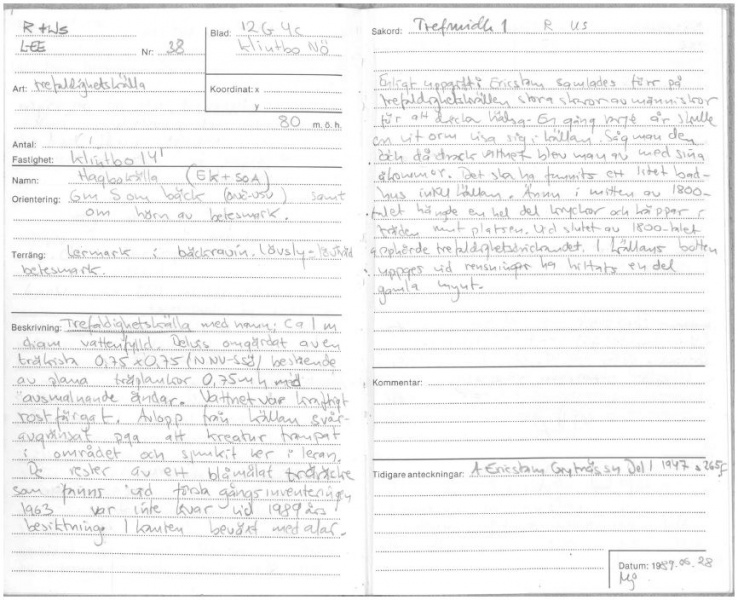 R + Ws
LEE
Nr: 38
Blad: 12G 4c
Klintbo NÖ
Art: trefaldighetskälla
Koordinat: x
y
80 m. ö. h.
Antal: 1
Fastighet: Klintbo 1:4'
Namn: Hagbokälla (EK + SOA)
Orientering: 6 m S om bäck (ONO-VSV) samt
om hörn av betesmark.
Terräng: Lermark i bäckravin. Lövsly-
betesmark.
Beskrivning: Trefaldighetskälla med namn: Ca 1 m
diam vattenfylld. Delvis omgärdat av en
träkista 0,75 x 0,75 (NNV-SSÖ) bestående
av plana träplankor 0,75 m h med
avsmalnande ändar. Vattnet var kraftigt
rostfärgat. Avlopp från källan svår-
avgränsat pga att kreatur trampat
i området och sjunkit ner i leran.
De rester av ett blåmålat trästäcke
som fanns vid första gångs inventeringen
1963 var inte kvar vid 1989 års
besiktning. I kanten beväxt med alar.
Sakord: Trefmidk 1 R US
Enligt uppgift i Ericstam samlades förr på
trefaldighetskvällen stora skaror av människor
för att dricka hälsa. En gång varje år skulle
en vit orm visa sig i källan. Såg man den
och då drack vattnet blev man av med sina
åkommor. Det ska ha funnits ett litet bad-
hus intill källan. Ännu i mitten av 1800-
talet hängde en hel del kryckor och käppar i
träden runt platsen. Vid slutet av 1800-talet
upphörde trefaldighetsdrickandet. I källans botten
uppges vid rensningar ha hittats en del
gamla mynt.
Kommentar:
Tidigare anteckningar: A Ericstam Grytnäs sn Del I 1947 s 265f
Datum: 1989.06.28
Mg